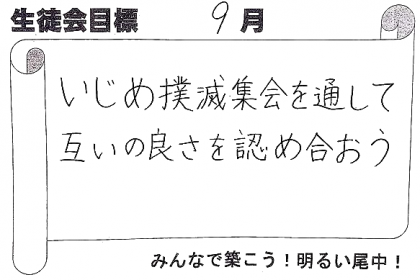 生徒会目標　9月
いじめ撲滅集会を通して
互いの良さを認め合おう
みんなで築こう！明るい尾中！